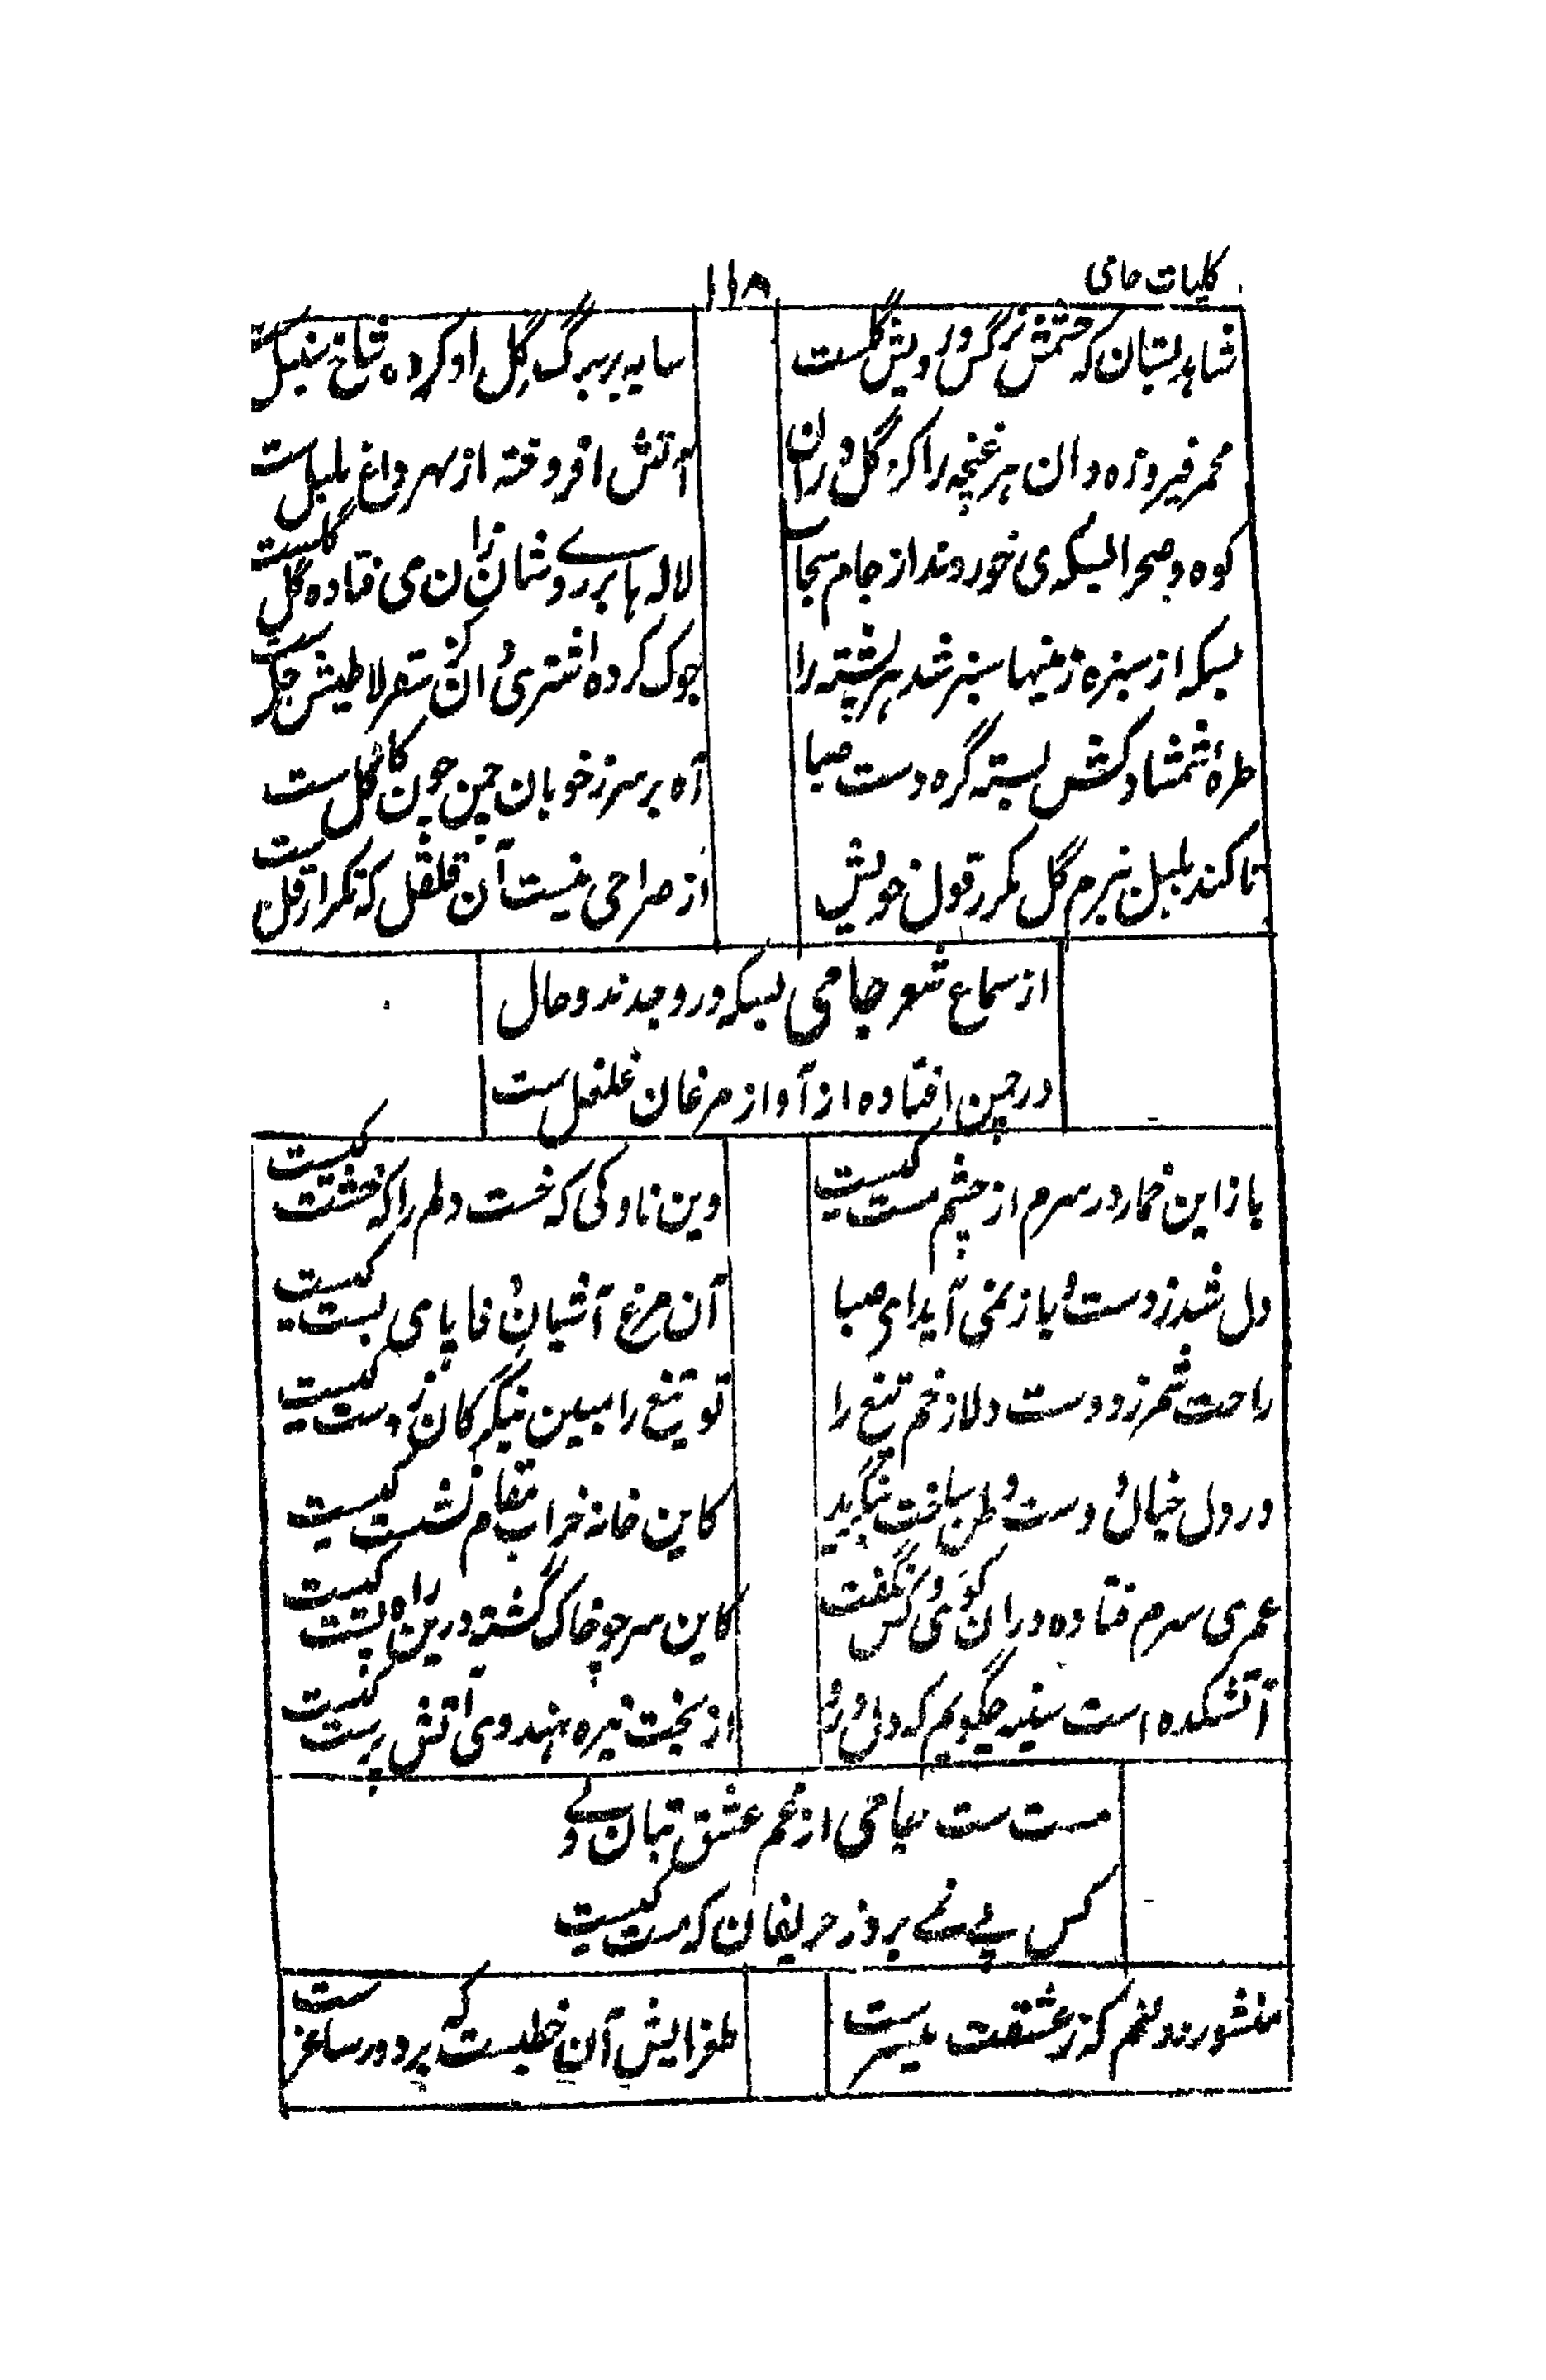 کلیات جامی
۱۱۸
شاهد بستان که چشمش نرگس و رویش گلست
سایه بر برگ گل او کرده شاخ سنبل است
مجمر فیروزه دان هر غنچه را کز گل در ان
آتش افروخته از بهر داغ بلبل است
کوه و صحرا بسکه می خوردند از جام
لاله ها بر روی شان زان می فتاده گل گلست
بسکه از سبزه زمینها سبز شد هر پشته را
طرهٔ شمشاد کش بسته گره دست صبا
آه بر سرز خوبان چمن چون کاکل است
تا کند بلبل ببزم گل مکرر قول خویش
از صراحی نیست آن قلقل که تکرار قل است
از سماع شعر جامی بسکه در وجدند و حال
در چمن افتاده از آواز مرغان غلغل است
باز این خمار در سرم از چشم مست کیست
وین ناوکی که خست دلم را ز شست کیست
دل شد ز دست و باز نمی آید ای صبا
آن مرغ آشیان وفا پای بست کیست
راحت شمر ز دوست دلا زخم تیغ را
تو تیغ را مبین بنگر کان ز دست کیست
در دل خیال دوست وطن ساخت بنگرید
کاین خانه خراب مقام نشست کیست
عمری سرم فتاده در ان کوی و کس نگفت
کاین سر چو خاک گشته درین راه پست کیست
آتشکده است سینه چگویم که دل درو
از بخت تیره هندوی آتش پرست کیست
مست ست جامی از غم عشق بتان ولے
کس پی نمے برد ز حریفان که مست کیست
منشور دولتم که ز عشقت میسرست
طغرایش آن خطیست که بر دور ساغر ست